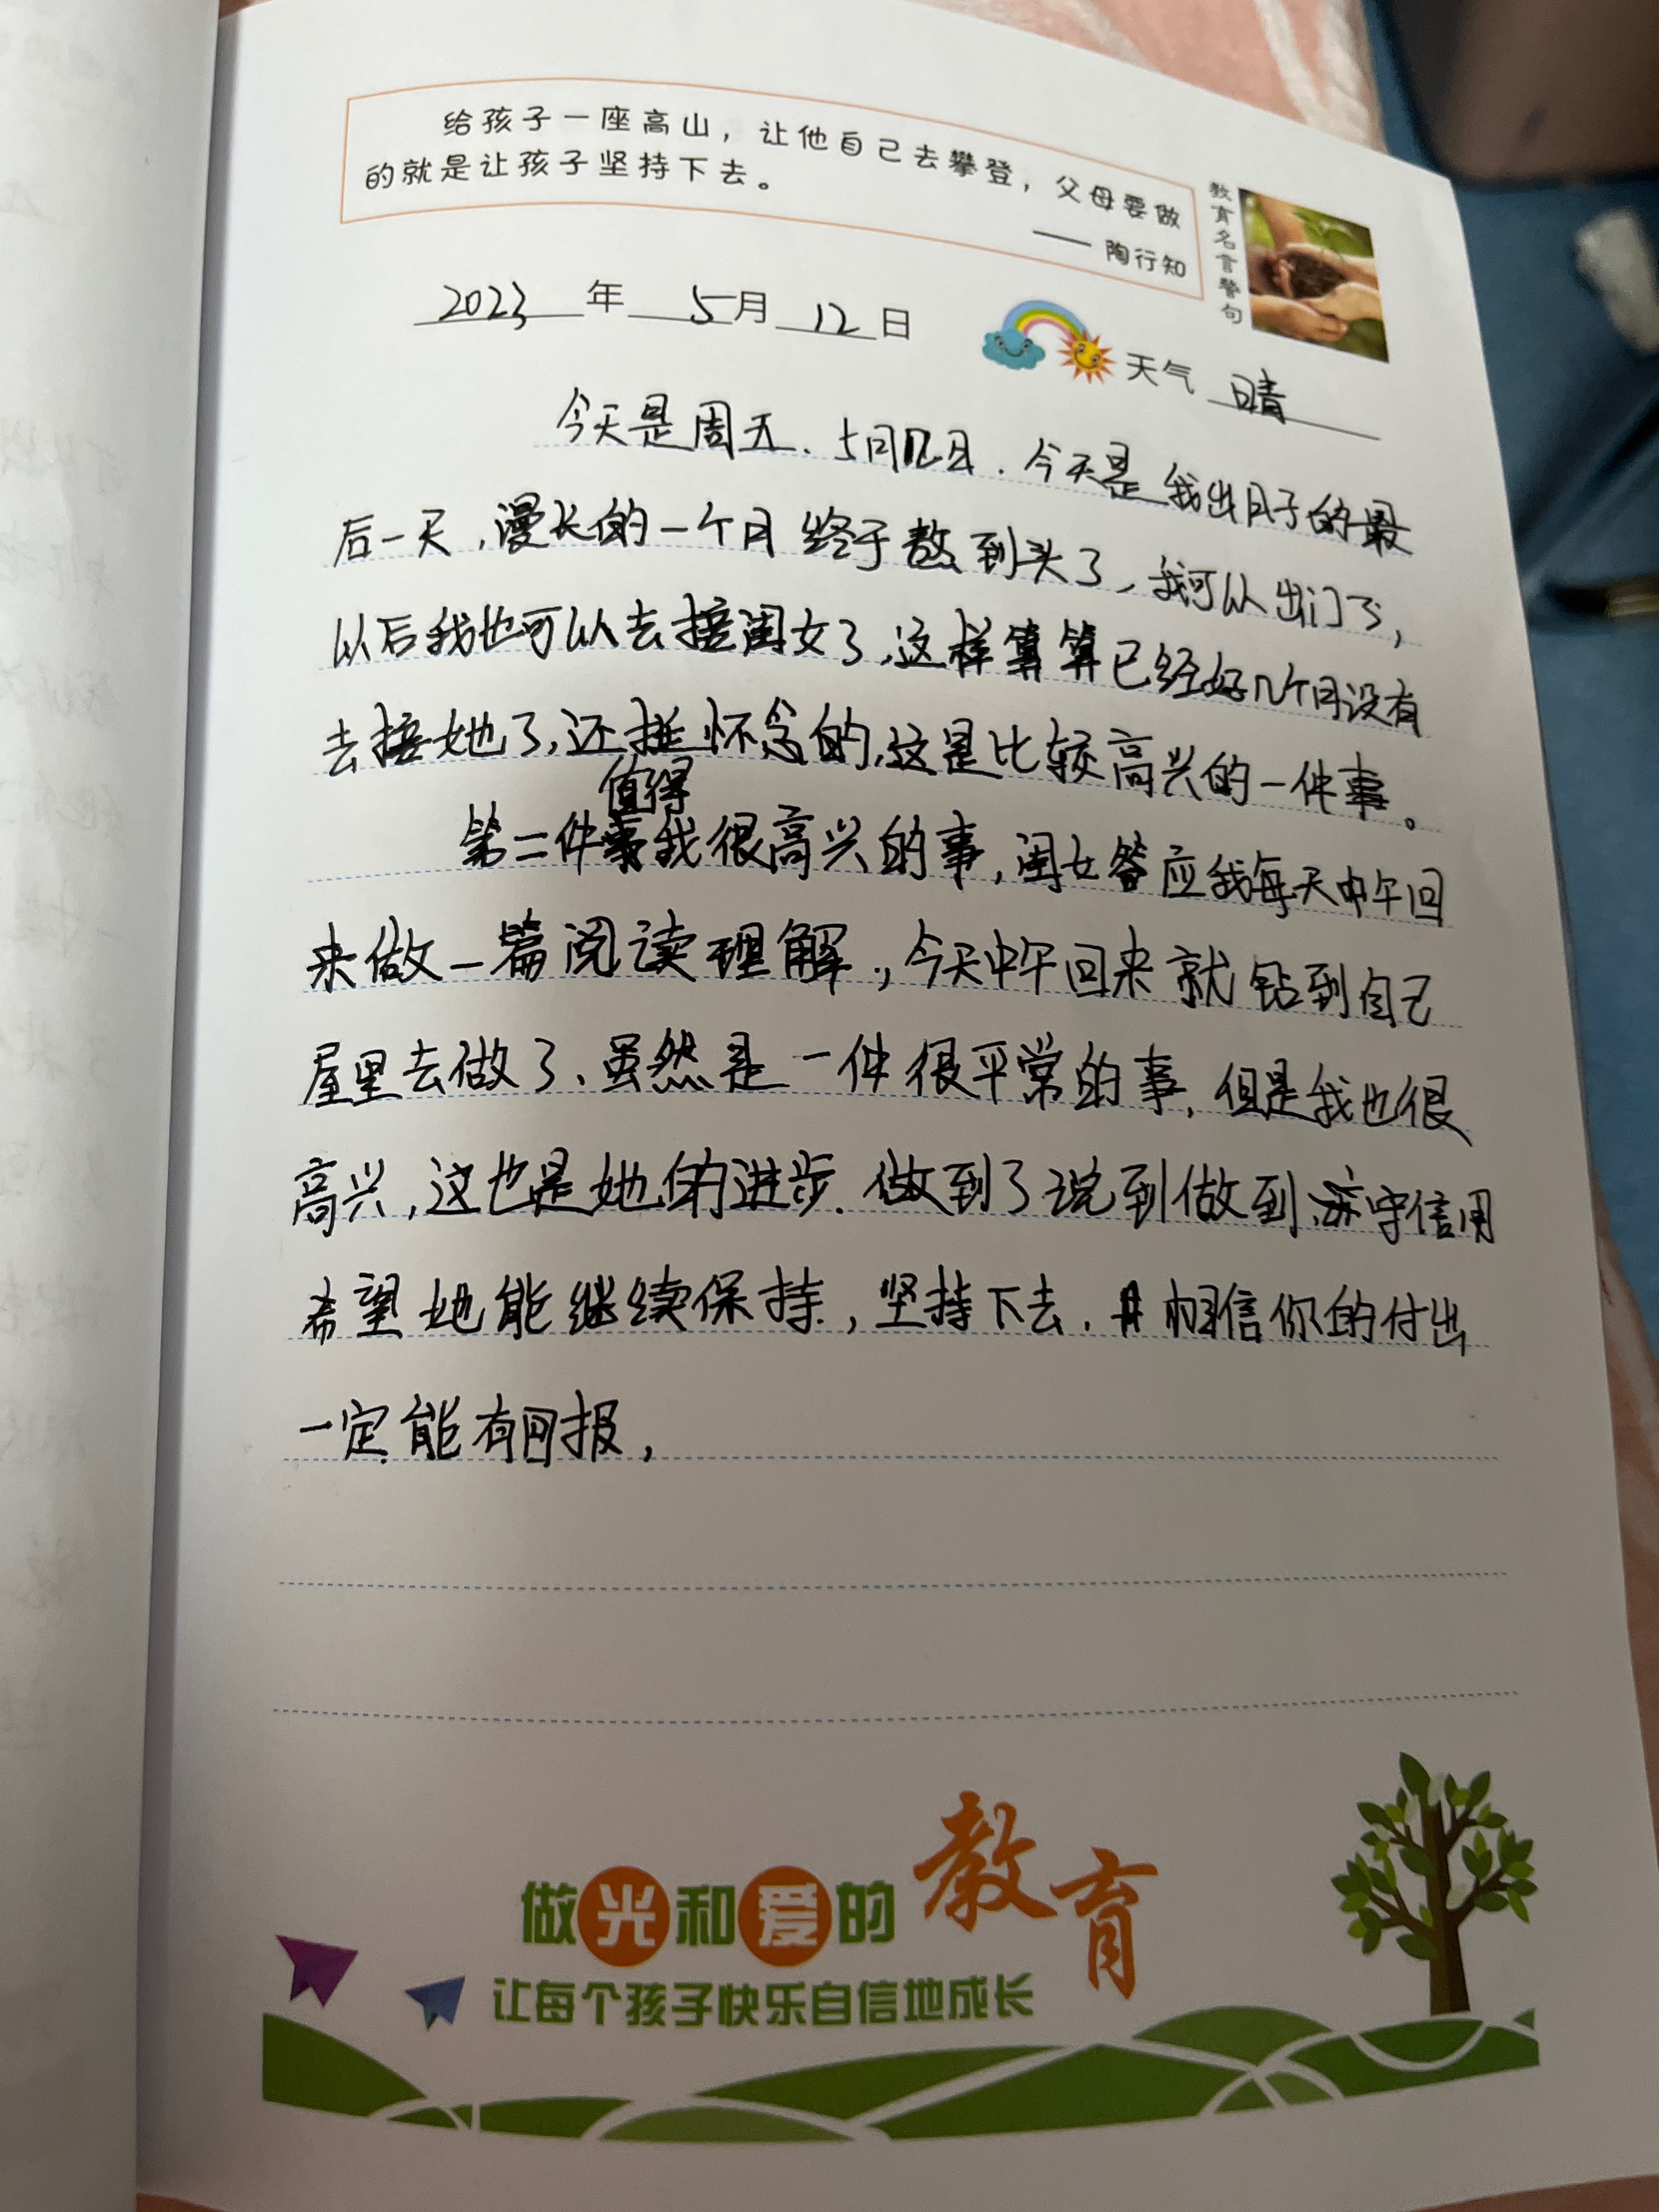 给孩子一座高山，让他自己去攀登，父母要做
的就是让孩子坚持下去。
—— 陶行知
教育名言警句
2023年 5月 12日
天气 晴
今天是周五、5月12日．今天是我出月子的最
后一天，漫长的一个月终于熬到头了，我可以出门了，
以后我也可以去接闺女了，这样算算已经好几个月没有
去接她了，还挺怀念的，这是比较高兴的一件事。
值得
第二件我很高兴的事，闺女答应我每天中午回
来做一篇阅读理解，今天中午回来就钻到自己
屋里去做了、虽然是一件很平常的事，但是我也很
高兴，这也是她的进步．做到了说到做到，守信用
希望她能继续保持，坚持下去．相信你的付出
一定能有回报，
做光和爱的教育
让每个孩子快乐自信地成长